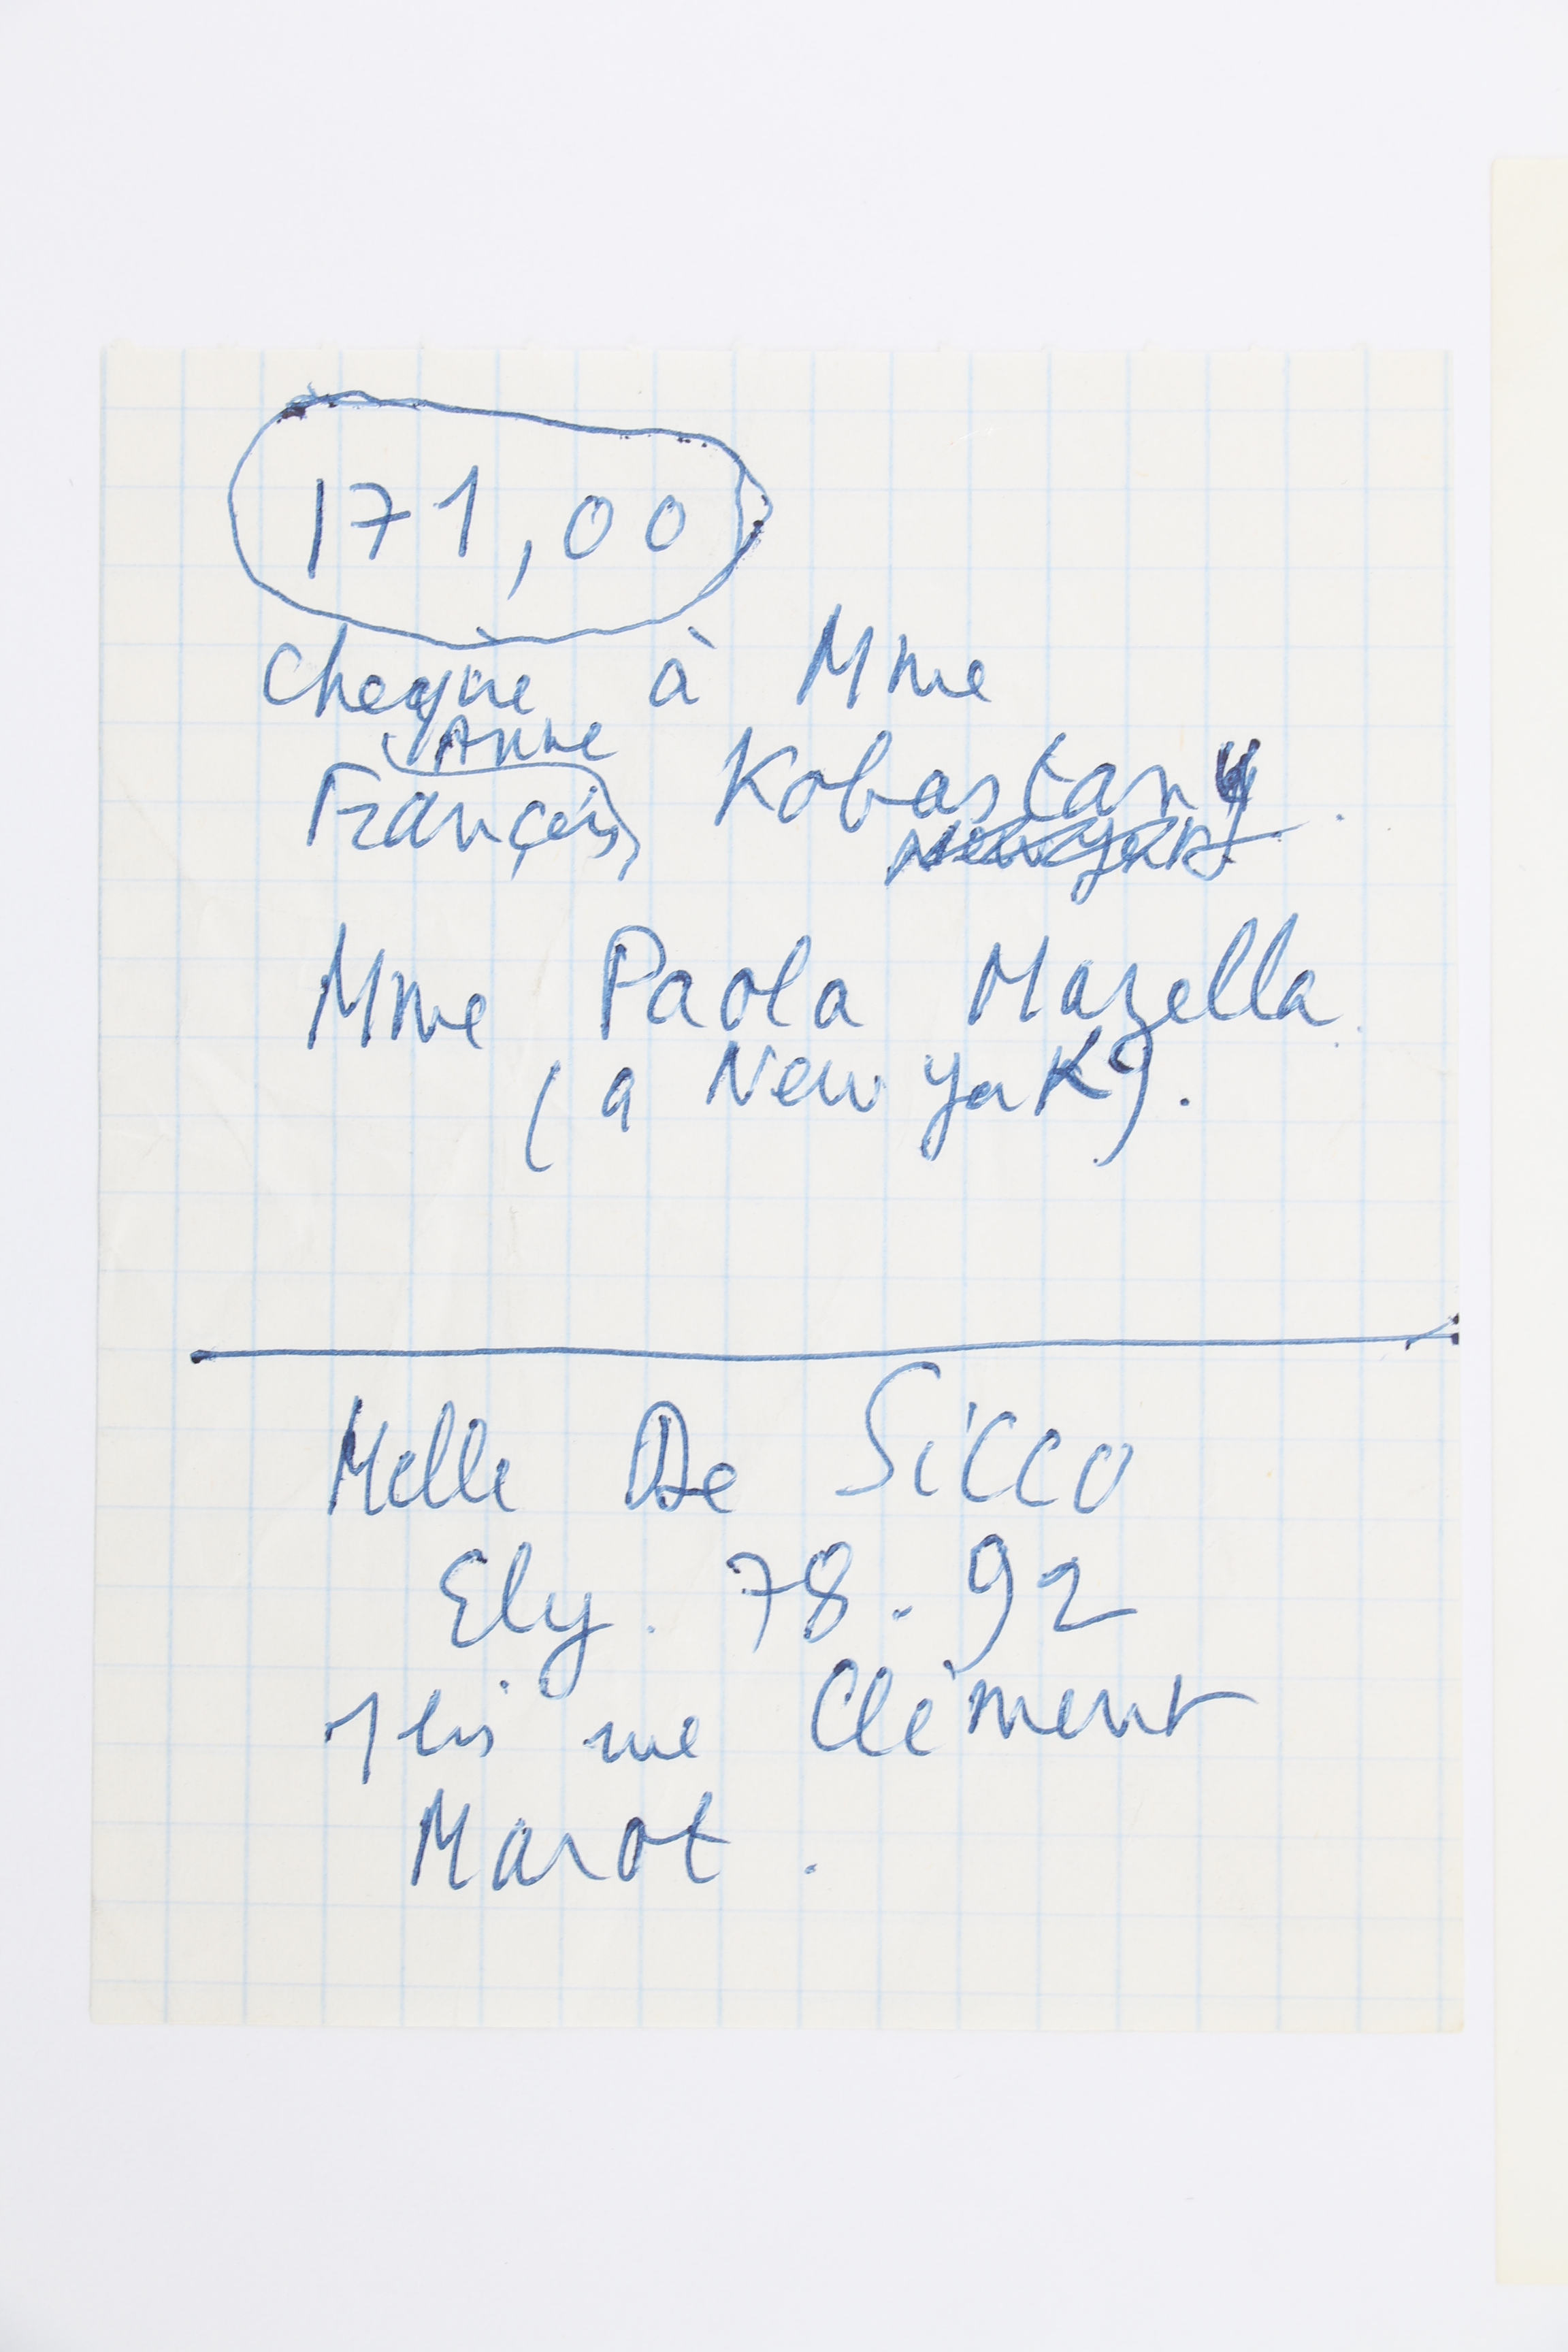 171,00
chèque à Mme
Anne
François Kobastany.
New York
Mme Paola Mazella.
(a New York).
Melle De Sicco
Ely. 78.92
1 bis rue Clément
Marot.